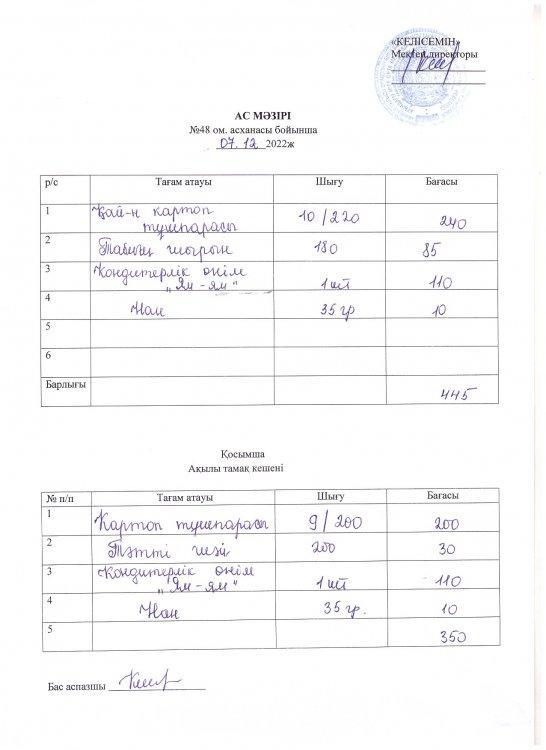 «КЕЛІСЕМІН»
Мектеп директоры
АС МӘЗІРІ
№48 ом. асханасы бойынша
07.12 2022ж
р/с Тағам атауы Шығу Бағасы
1 Қай-н картоп
тұшпарасы 10/220 240
2 Табиғи шырын 180 85
3 Кондитерлік өнім
„Ям-ям" 1 шт 110
4 Нан 35 гр 10
5
6
Барлығы 445
Қосымша
Ақылы тамақ кешені
№ п/п Тағам атауы Шығу Бағасы
1 Картоп тұшпарасы 9/200 200
2 Тәтті шәй 200 30
3 Кондитерлік өнім
„Ям-ям" 1 шт 110
4 Нан 35 гр. 10
5 350
Бас аспазшы